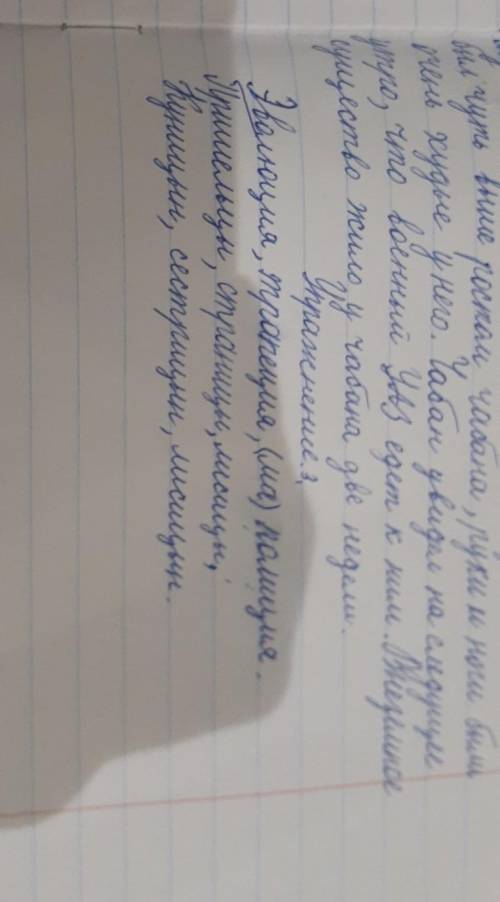 был чуть выше ростом чабана, руки и ноги были
очень худые у него. Чабан увидел на следущее
утро, что военный Уаз едет к ним. Внеземное
существо жило у чабана две недели.
Упражнение:
Эволюция, трапеция, (ма) полиция.
Пришельцы, страницы, лисицы,
Куницын, сестрицын, лисицын.